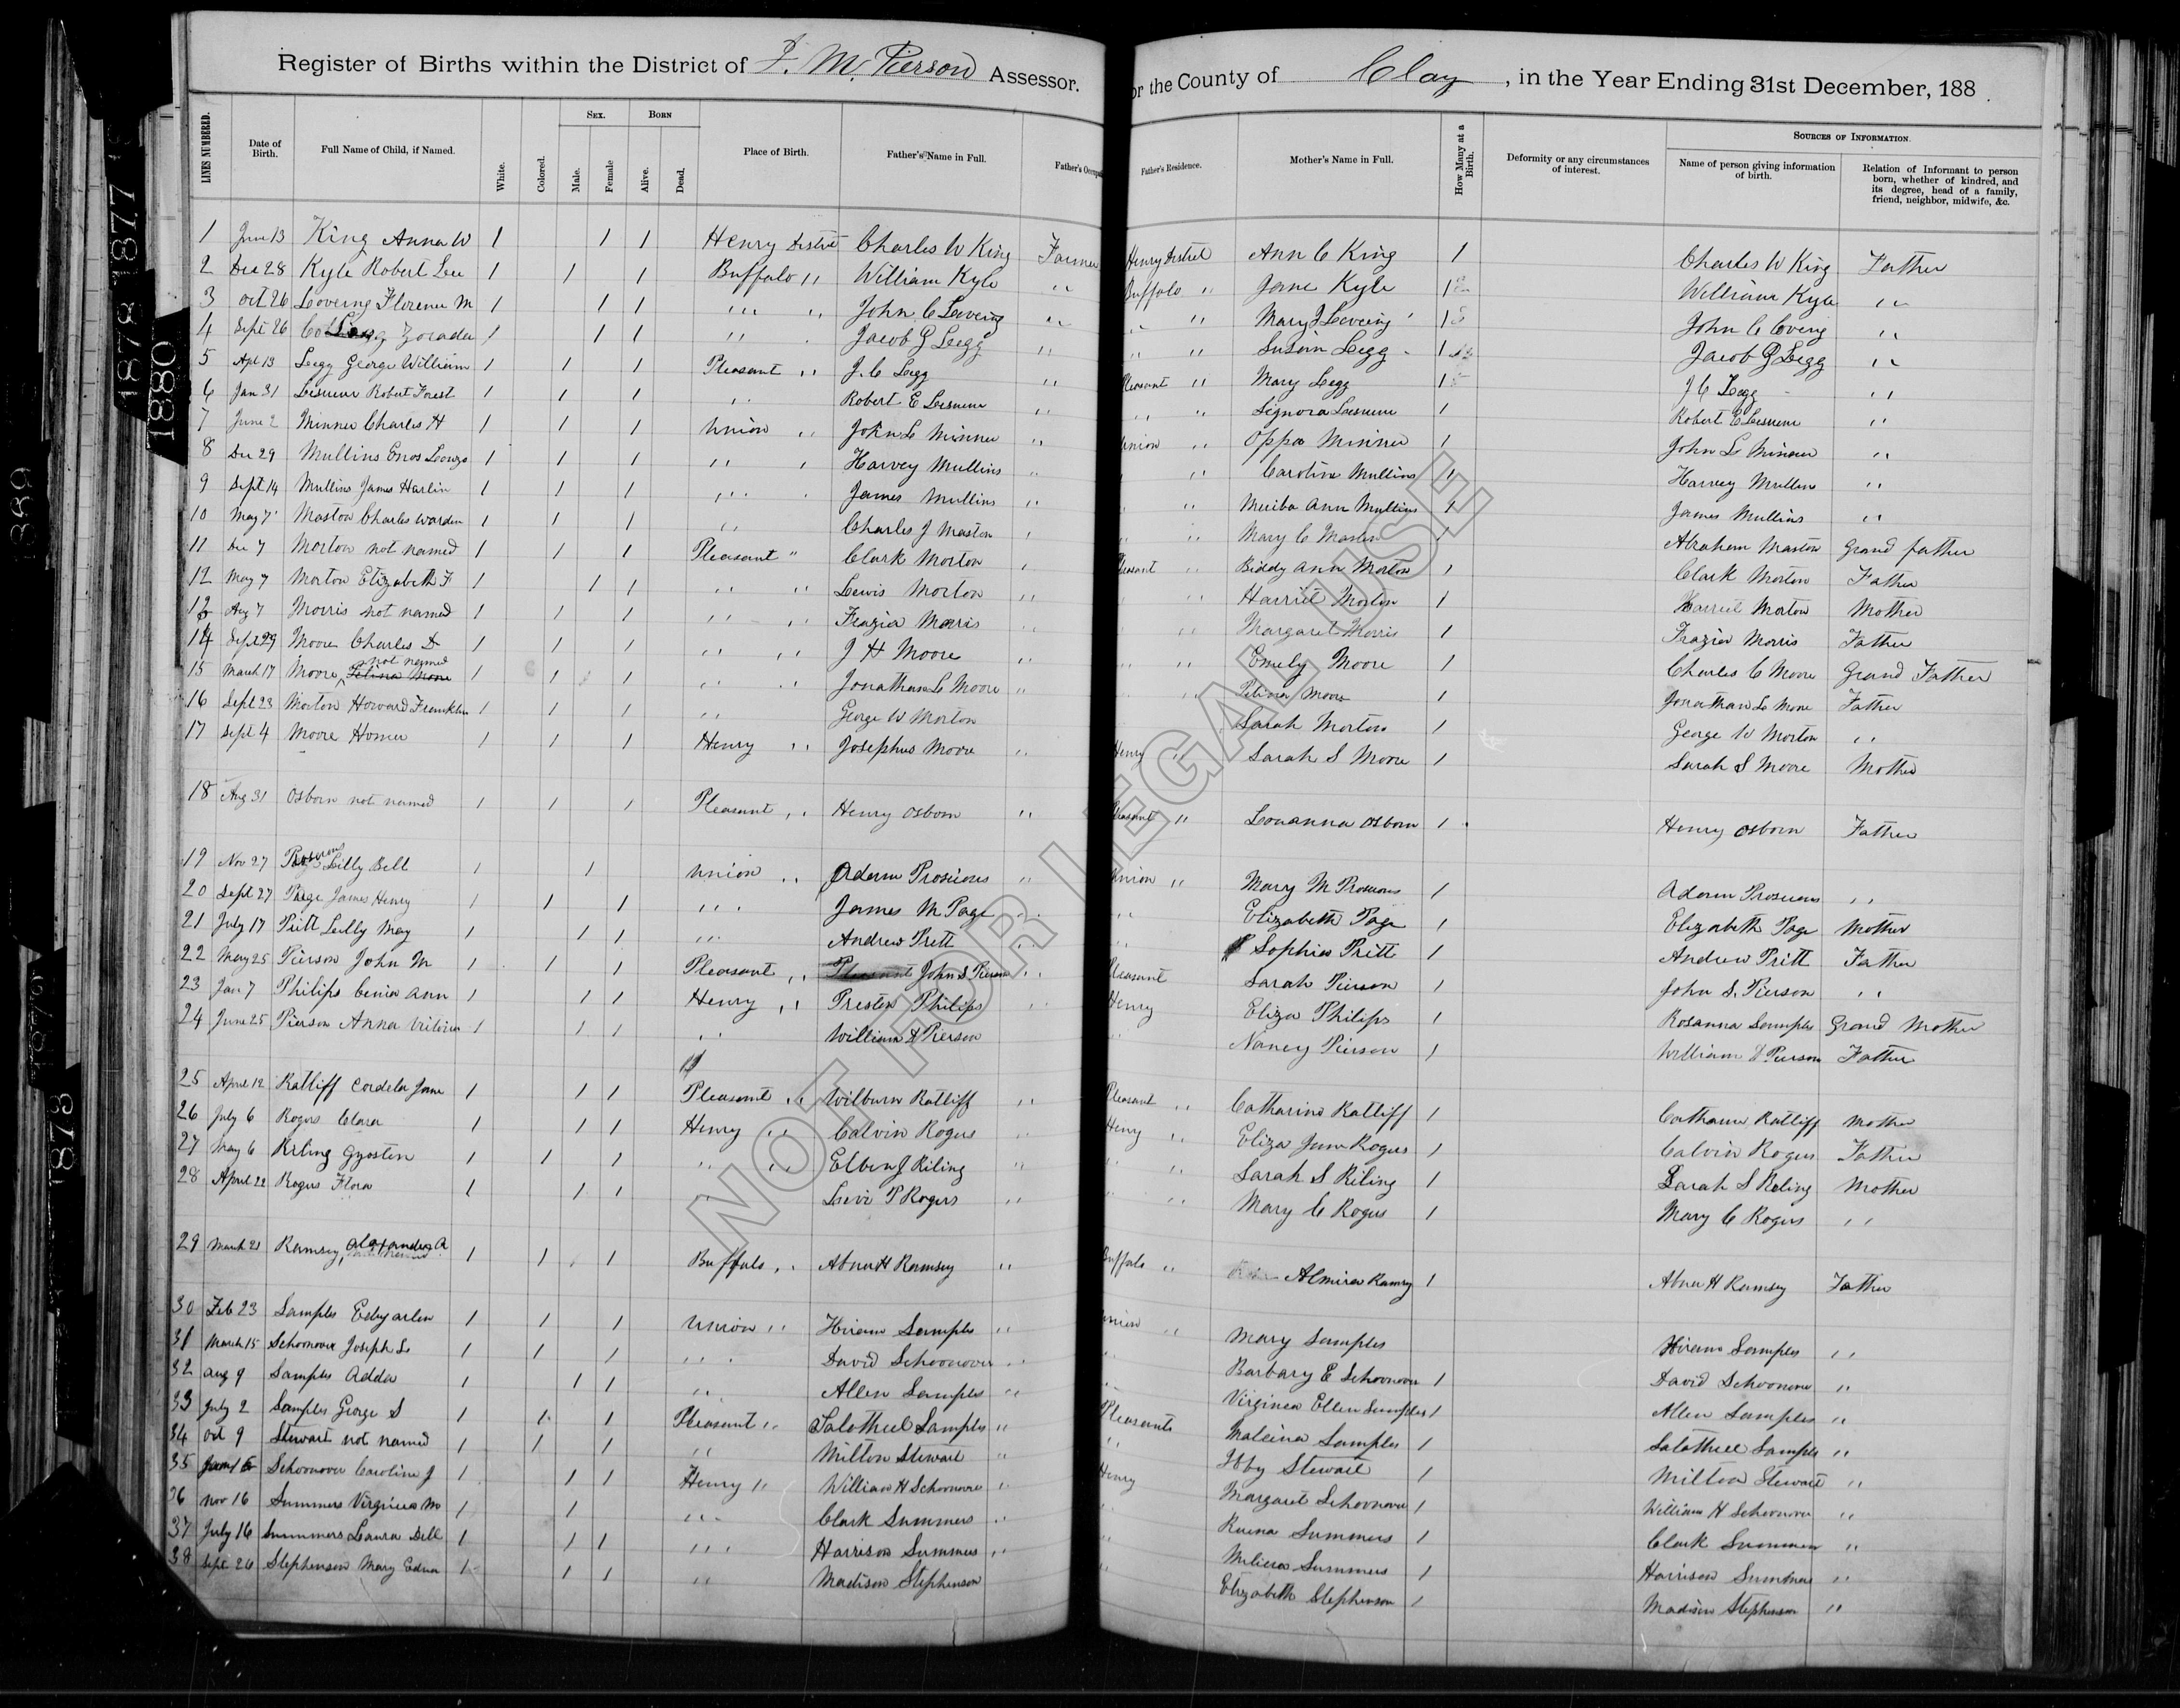 Register of Births within the District of J. M. Pierson Assessor. or the County of Clay, in the Year Ending 31st December, 188 .
LINES NUMBERED. Date of Birth. Full Name of Child, if Named. White. Colored. SEX. Male. Female BORN Alive. Dead. Place of Birth. Father's Name in Full. Father's Occupa Father's Residence. Mother's Name in Full. How Many at a Birth. Deformity or any circumstances of interest. SOURCES OF INFORMATION. Name of person giving information of birth. Relation of Informant to person born, whether of kindred, and its degree, head of a family, friend, neighbor, midwife, &c.
1 June 13 King Anna W 1 1 1 Henry District Charles W King Farmer Henry District Ann C King 1 Charles W King Father
2 Dec 28 Kyle Robert Lee 1 1 1 Buffalo " William Kyle " Buffalo " Jane Kyle 1 William Kyle "
3 Oct 26 Lovering Florence M 1 1 1 " " John C Levering " " " Mary J Levering 1 John C Covering "
4 Sept 26 Zorada 1 1 1 " Jacob G Legg " " " Susan Legg 1 Jacob G Legg "
5 Apl 13 Legg George William 1 1 1 Pleasant " J. C Legg " Pleasant " Mary Legg 1 J C Legg "
6 Jan 31 Lesueur Robert Forest 1 1 1 " Robert E Lesueur " " " Signora Lesueur 1 Robert E Lesueur "
7 June 2 Minner Charles H 1 1 1 Union " John L Minner " Union " Oppa Minner 1 John L Minner "
8 Dec 29 Mullins Enos Lonzo 1 1 1 " " Harvey Mullins " " Caroline Mullins 1 Harvey Mullins "
9 Sept 14 Mullins James Harlin 1 1 1 " James Mullins " " Ann Mullins 1 James Mullins "
10 May 7 Maston Charles Warden 1 1 1 " Charles J Maston " " " Mary C Maston 1 Abraham Maston Grand father
11 Dec 7 Morton not named 1 1 1 Pleasant " Clark Morton " Pleasant " Biddy Ann Morton 1 Clark Morton Father
12 May 7 Morton Elizabeth F 1 1 1 " " Lewis Morton " " Harriet Morton 1 Harriet Morton Mother
13 Aug 7 Morris not named 1 1 1 " " Frazier Morris " " Margaret Morris 1 Frazier Morris Father
14 Sept 29 Moore Charles D 1 1 1 " " J H Moore " " " Emely Moore 1 Charles C Moore Grand Father
15 March 17 Moore not named 1 1 1 " " Jonathan L Moore " Moore 1 Jonathan L Moore Father
16 Sept 23 Morton Howard Franklin 1 1 1 " George W Morton Sarah Morton 1 George W Morton "
17 Sept 4 Moore Homer 1 1 1 Henry " Josephus Moore " Henry " Sarah S Moore 1 Sarah S Moore Mother
18 Aug 31 Osborn not named 1 1 1 Pleasant " Henry Osborn " Pleasant " Louanna Osborn 1 Henry Osborn Father
19 Nov 27 Lilly Bell 1 1 Union " Adam Proscious " Union " Mary M Proscious 1 Adam Proscious "
20 Sept 27 Page James Henry 1 1 1 " James M Page " " Elizabeth Page 1 Elizabeth Page Mother
21 July 17 Pritt Lilly May 1 1 1 " Andrew Pritt " " Sophia Pritt 1 Andrew Pritt Father
22 May 25 Pierson John M 1 1 1 Pleasant " John S Pierson " Pleasant Sarah Pierson 1 John S. Pierson "
23 Jan 7 Philips Ann 1 1 1 Henry " Preston Philips " Henry Eliza Philips 1 Rosanna Samples Grand Mother
24 June 25 Pierson Anna 1 1 1 " William D Pierson " Nancy Pierson 1 William D Pierson Father
25 April 12 Ratliff Cordela Jane 1 1 1 Pleasant " Wilburn Ratliff " Pleasant " Catharine Ratliff 1 Catharine Ratliff Mother
26 July 6 Rogers Clara 1 1 1 Henry " Calvin Rogers " Henry " Eliza Jane Rogers 1 Calvin Rogers Father
27 May 6 Riling 1 1 1 " " J Riling " " " Sarah S Riling 1 Sarah S Riling Mother
28 April 22 Rogers Flora 1 1 1 " Levi P Rogers " " " Mary C Rogers 1 Mary C Rogers "
29 March 21 Ramsey, Alexander A 1 1 1 Buffalo " Abner H Ramsey " Buffalo " Almira Ramsey 1 Abner H Ramsey Father
30 Feb 23 Samples 1 1 1 Union " Hiram Samples " Union " Mary Samples Hiram Samples "
31 March 15 Schoonover Joseph L 1 1 1 " David Schoonover " " Barbary E Schoonover 1 David Schoonover "
32 Aug 9 Samples Adda 1 1 1 " Allen Samples " " Virginia Ellen Samples 1 Allen Samples "
33 July 2 Samples George S 1 1 1 Pleasant " Salathiel Samples " Pleasants Malcina Samples 1 Salathiel Samples "
34 Oct 9 Stewart not named 1 1 1 " Milton Stewart " " Ibby Stewart 1 Milton Stewart "
35 Schoonover Caroline J 1 1 1 Henry " William H Schoonover " Henry Margaret Schoonover 1 William H Schoonover "
36 Nov 16 Summers Virginia M 1 1 " Clark Summers " " Summers 1 Clark Summers "
37 July 16 Summers Laura Bell 1 1 1 " Harrison Summers " " Summers 1 Harrison Summers "
38 Sept 26 Stephenson Mary Edna 1 1 1 " Madison Stephenson " Elizabeth Stephenson 1 Madison Stephenson "
NOT FOR LEGAL USE
1877
1878
1880
1878